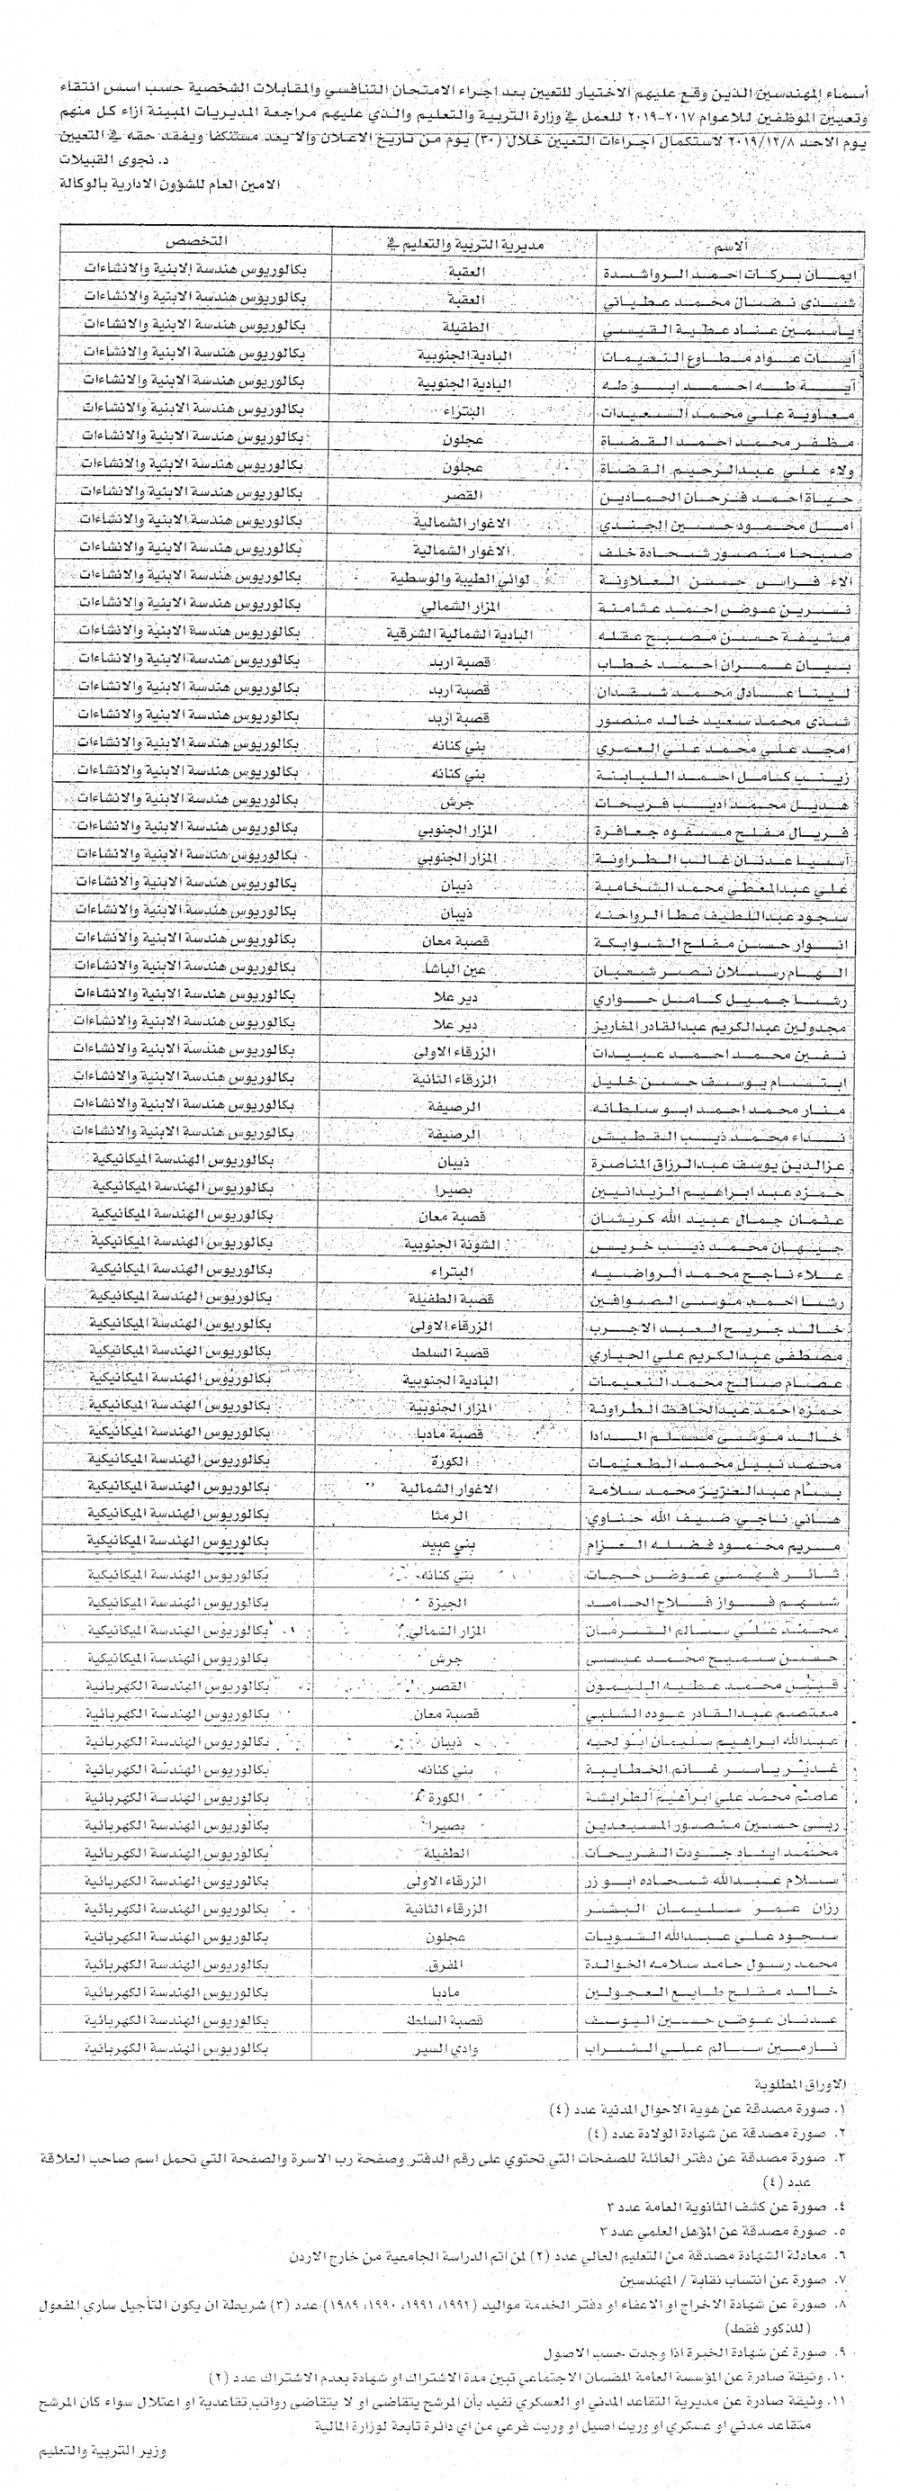 أسماء المهندسين الذين وقع عليهم الاختيار للتعيين بعد اجراء الامتحان التنافسي والمقابلات الشخصية حسب اسس انتقاء
وتعيين الموظفين للاعوام ٢٠١٧-٢٠١٩ للعمل في وزارة التربية والتعليم والذي عليهم مراجعة المديريات المبينة ازاء كل منهم
يوم الاحد ٢٠١٩/١٢/٨ لاستكمال اجراءات التعيين خلال (٣٠) يوم من تاريخ الاعلان والا يعد مستنكفا ويفقد حقه في التعيين
د. نجوى القبيلات
الامين العام للشؤون الادارية بالوكالة
الاسم مديرية التربية والتعليم في التخصص
ايمان بركات احمد الرواشدة العقبة بكالوريوس هندسة الابنية والانشاءات
شذى نضال محمد عطياني العقبة بكالوريوس هندسة الابنية والانشاءات
ياسمين عناد عطية القيسي الطفيلة بكالوريوس هندسة الابنية والانشاءات
آيات عواد مطاوع النعيمات البادية الجنوبية بكالوريوس هندسة الابنية والانشاءات
آية طه احمد ابو طه البادية الجنوبية بكالوريوس هندسة الابنية والانشاءات
معاوية علي محمد السعيدات البتراء بكالوريوس هندسة الابنية والانشاءات
مظفر محمد احمد القضاة عجلون بكالوريوس هندسة الابنية والانشاءات
ولاء علي عبدالرحيم القضاة عجلون بكالوريوس هندسة الابنية والانشاءات
حياة احمد فرحان الحمادين القصر بكالوريوس هندسة الابنية والانشاءات
امل محمود حسين الجندي الاغوار الشمالية بكالوريوس هندسة الابنية والانشاءات
صبحا منصور شحادة خلف الاغوار الشمالية بكالوريوس هندسة الابنية والانشاءات
الاء فراس حسن العلاونة لوائي الطيبة والوسطية بكالوريوس هندسة الابنية والانشاءات
نسرين عوض احمد عشامنة المزار الشمالي بكالوريوس هندسة الابنية والانشاءات
منيفة حسن مصبح عقله البادية الشمالية الشرقية بكالوريوس هندسة الابنية والانشاءات
بنيان عمران احمد خطاب قصبة اربد بكالوريوس هندسة الابنية والانشاءات
لينا عادل محمد شقدان قصبة اربد بكالوريوس هندسة الابنية والانشاءات
شذى محمد سعيد خالد منصور قصبة اربد بكالوريوس هندسة الابنية والانشاءات
امجد علي محمد علي العمري بني كنانه بكالوريوس هندسة الابنية والانشاءات
زينب كامل احمد اللبابنة بني كنانه بكالوريوس هندسة الابنية والانشاءات
هديل محمد اديب فريحات جرش بكالوريوس هندسة الابنية والانشاءات
فريال مفلح مسفوه جعافرة المزار الجنوبي بكالوريوس هندسة الابنية والانشاءات
آسيا عدنان غالب الطراونة المزار الجنوبي بكالوريوس هندسة الابنية والانشاءات
علي عبدالمعطي محمد الشخامبة ذيبان بكالوريوس هندسة الابنية والانشاءات
سجود عبداللطيف عطا الرواحنه ذيبان بكالوريوس هندسة الابنية والانشاءات
انوار حسن مفلح الشوابكة قصبة معان بكالوريوس هندسة الابنية والانشاءات
الهام رسلان نصر شعبان عين الباشا بكالوريوس هندسة الابنية والانشاءات
رشا جميل كامل حواري دير علا بكالوريوس هندسة الابنية والانشاءات
مجدولين عبدالكريم عبدالقادر المغاريز دير علا بكالوريوس هندسة الابنية والانشاءات
نفين محمد احمد عبيدات الزرقاء الاولى بكالوريوس هندسة الابنية والانشاءات
ابتسام يوسف حسن خليل الزرقاء الثانية بكالوريوس هندسة الابنية والانشاءات
منار محمد احمد ابو سلطانه الرصيفة بكالوريوس هندسة الابنية والانشاءات
نداء محمد ذيب النقطيش الرصيفة بكالوريوس هندسة الابنية والانشاءات
عزالدين يوسف عبدالرزاق المناصرة ذيبان بكالوريوس الهندسة الميكانيكية
حمزه عبد ابراهيم الزيدانيين بصيرا بكالوريوس الهندسة الميكانيكية
عثمان جمال عبيد الله كريشان قصبة معان بكالوريوس الهندسة الميكانيكية
جيهان محمد ذيب خريس الشونة الجنوبية بكالوريوس الهندسة الميكانيكية
علاء ناجح محمد الرواضيه البتراء بكالوريوس الهندسة الميكانيكية
رشا احمد موسى الصوافين قصبة الطفيلة بكالوريوس الهندسة الميكانيكية
خالد جريح العبد الاجرب الزرقاء الاولى بكالوريوس الهندسة الميكانيكية
مصطفى عبدالكريم علي الحياري قصبة السلط بكالوريوس الهندسة الميكانيكية
عصام صالح محمد النعيمات البادية الجنوبية بكالوريوس الهندسة الميكانيكية
حمزه احمد عبدالحافظ الطراونة المزار الجنوبية بكالوريوس الهندسة الميكانيكية
خالد موسى مسلم البدادا قصبة مادبا بكالوريوس الهندسة الميكانيكية
محمد نبيل محمد الطعيمات الكورة بكالوريوس الهندسة الميكانيكية
بسام عبدالعزيز محمد سلامة الاغوار الشمالية بكالوريوس الهندسة الميكانيكية
هاني ناجي ضيف الله حناوي الرمثا بكالوريوس الهندسة الميكانيكية
مريم محمود فضله العزام بني عبيد بكالوريوس الهندسة الميكانيكية
ثائر فهمي عوض حجات بني كنانه بكالوريوس الهندسة الميكانيكية
شهم فواز فلاح الحامد الجيزة بكالوريوس الهندسة الميكانيكية
محمد علي سالم الشرمان المزار الشمالي بكالوريوس الهندسة الميكانيكية
حسن سميح محمد عيسى جرش بكالوريوس الهندسة الميكانيكية
قيس محمد عطيه البليمون القصر بكالوريوس الهندسة الكهربائية
معتصم عبدالقادر عوده الشلبي قصبة معان بكالوريوس الهندسة الكهربائية
عبدالله ابراهيم سليمان ابو لحيه ذيبان بكالوريوس الهندسة الكهربائية
غدير ياسر غانم الخطايبة بني كنانه بكالوريوس الهندسة الكهربائية
عاصم محمد علي ابراهيم الطرابشة الكورة بكالوريوس الهندسة الكهربائية
ربى حسين منصور المسيعدين بصيرا بكالوريوس الهندسة الكهربائية
محمد اياد جودت الفريحات الطفيلة بكالوريوس الهندسة الكهربائية
سلام عبدالله شحاده ابو زر الزرقاء الاولى بكالوريوس الهندسة الكهربائية
رزان عمر سليمان البشر الزرقاء الثانية بكالوريوس الهندسة الكهربائية
سجود علي عبدالله الشويات عجلون بكالوريوس الهندسة الكهربائية
محمد رسول حامد سلامه الخوالدة المفرق بكالوريوس الهندسة الكهربائية
خالد مفلح طايع العجولين مادبا بكالوريوس الهندسة الكهربائية
عدنان عوض حسين اليوسف قصبة السلطة بكالوريوس الهندسة الكهربائية
نارمين سالم علي الشراب وادي السير بكالوريوس الهندسة الكهربائية
الاوراق المطلوبة
١. صورة مصدقة عن هوية الاحوال المدنية عدد (٤)
٢. صورة مصدقة عن شهادة الولادة عدد (٤)
٣. صورة مصدقة عن دفتر العائلة للصفحات التي تحتوي على رقم الدفتر وصفحة رب الاسرة والصفحة التي تحمل اسم صاحب العلاقة
عدد (٤)
٤. صورة عن كشف الثانوية العامة عدد ٣
٥. صورة مصدقة عن المؤهل العلمي عدد ٣
٦. معادلة الشهادة مصدقة من التعليم العالي عدد (٢) لمن اتم الدراسة الجامعية من خارج الاردن
٧. صورة عن انتساب نقابة / المهندسين
٨. صورة عن شهادة الاخراج او الاعفاء او دفتر الخدمة مواليد (١٩٩٢، ١٩٩١، ١٩٩٠، ١٩٨٩) عدد (٣) شريطة ان يكون التأجيل ساري المفعول
(للذكور فقط)
٩. صورة عن شهادة الخبرة اذا وجدت حسب الاصول
١٠. وثيقة صادرة عن المؤسسة العامة للضمان الاجتماعي تبين مدة الاشتراك او شهادة بعدم الاشتراك عدد (٢)
١١. وثيقة صادرة عن مديرية التقاعد المدني او العسكري تفيد بأن المرشح يتقاضى او لا يتقاضى رواتب تقاعدية او اعتلال سواء كان المرشح
متقاعد مدني او عسكري او وريث اصيل او وريث فرعي من اي دائرة تابعة لوزارة المالية
وزير التربية والتعليم